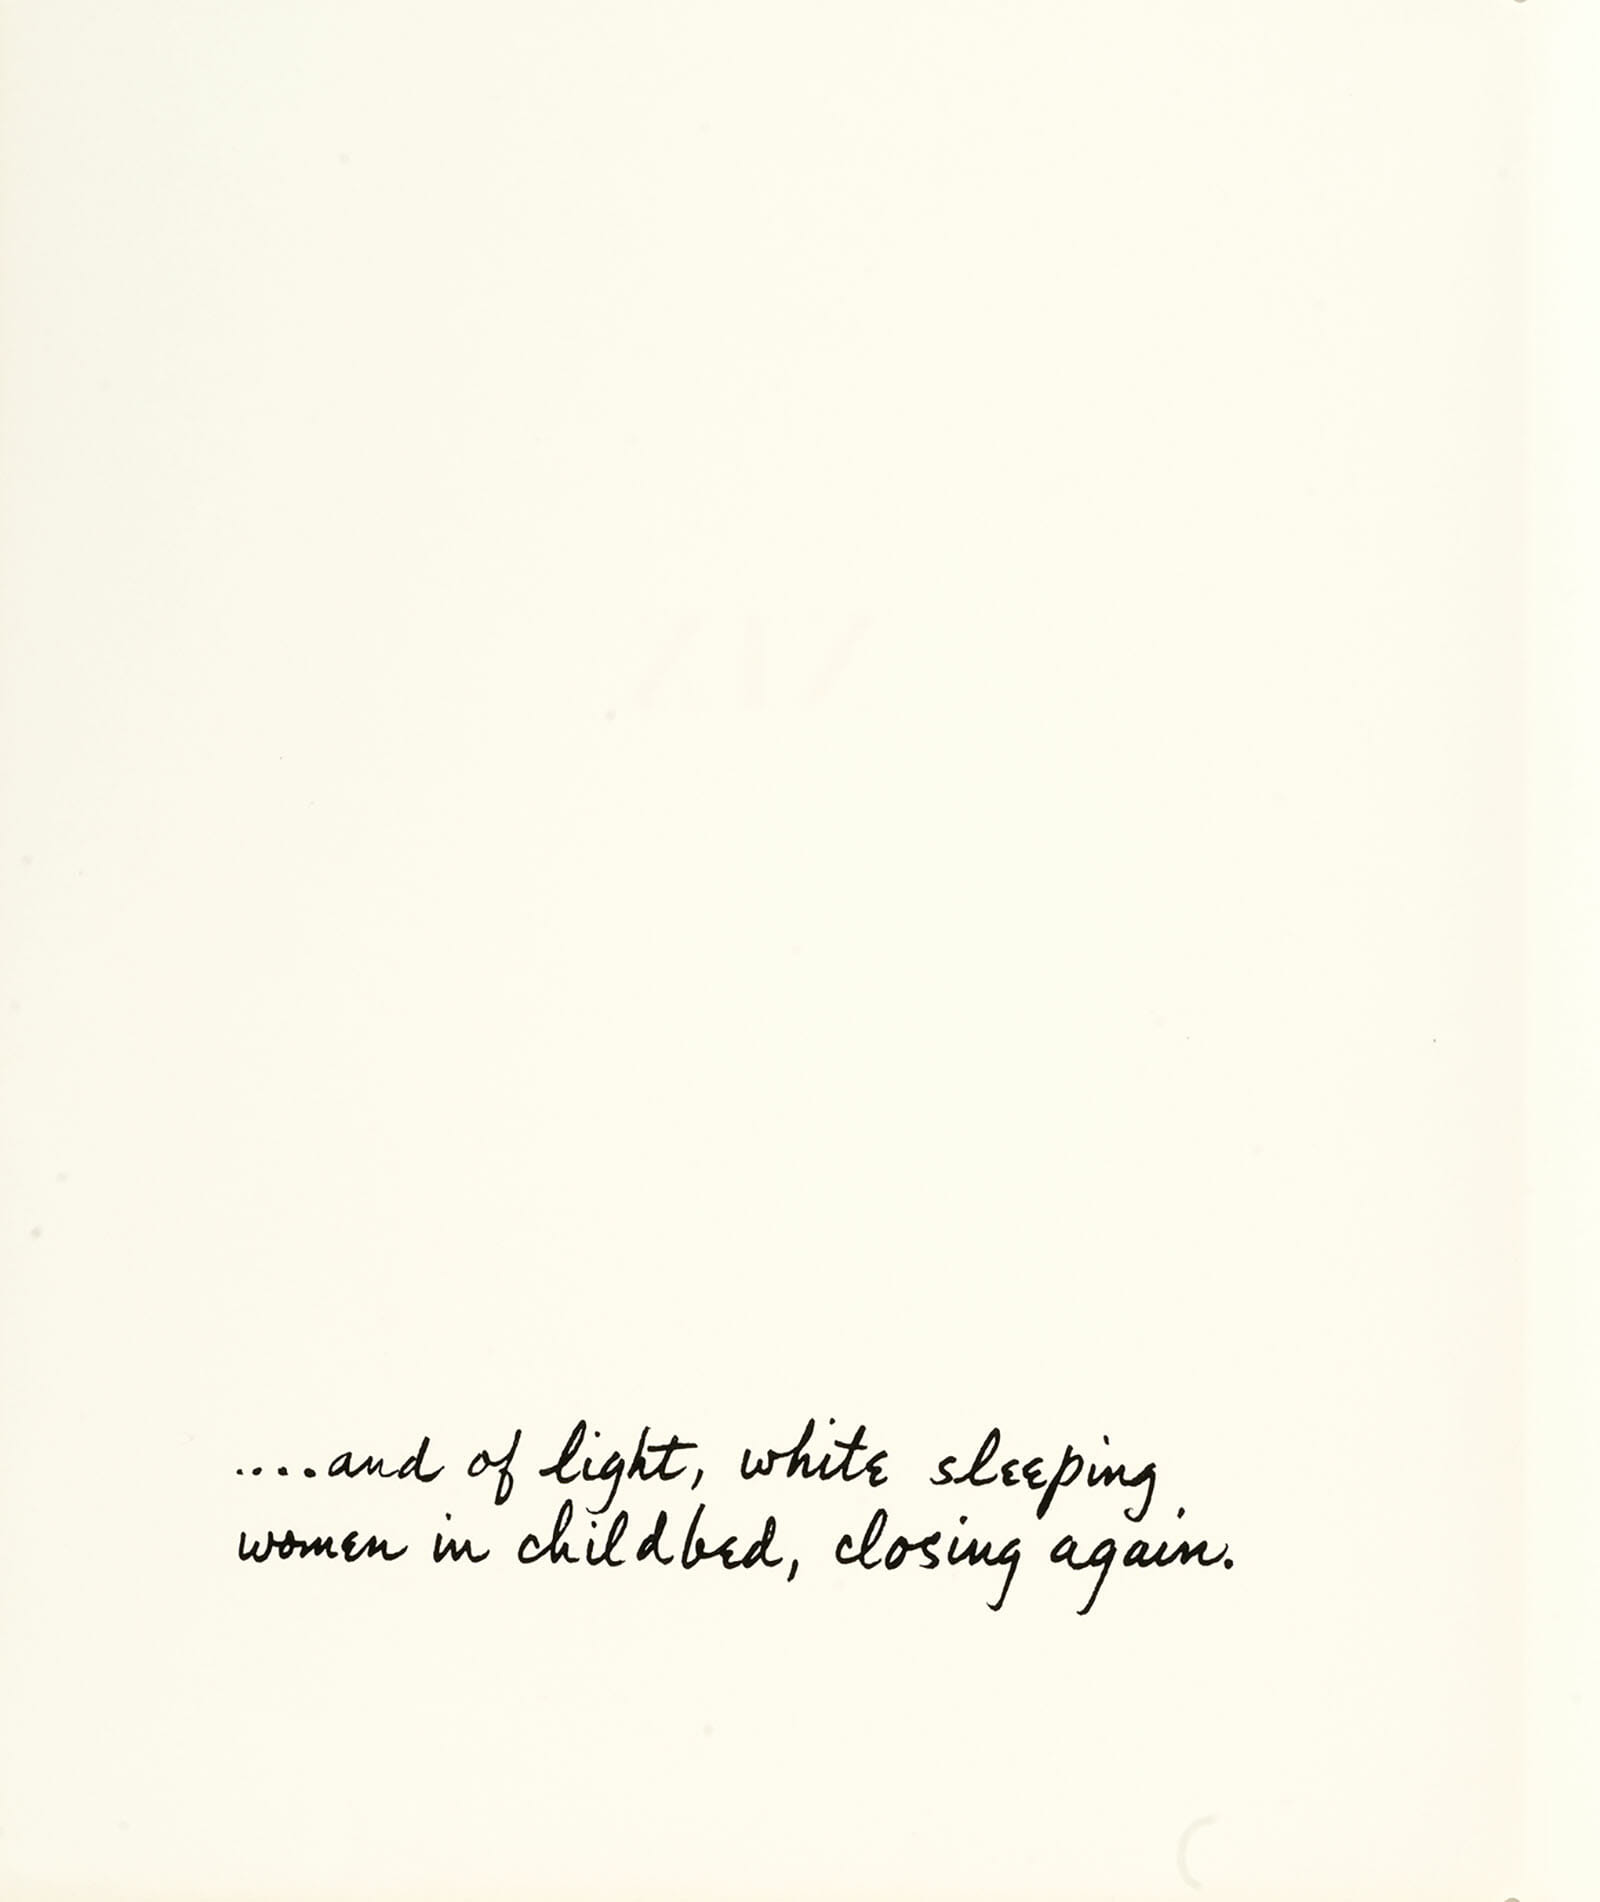 ....and of light, white sleeping
women in childbed, closing again.